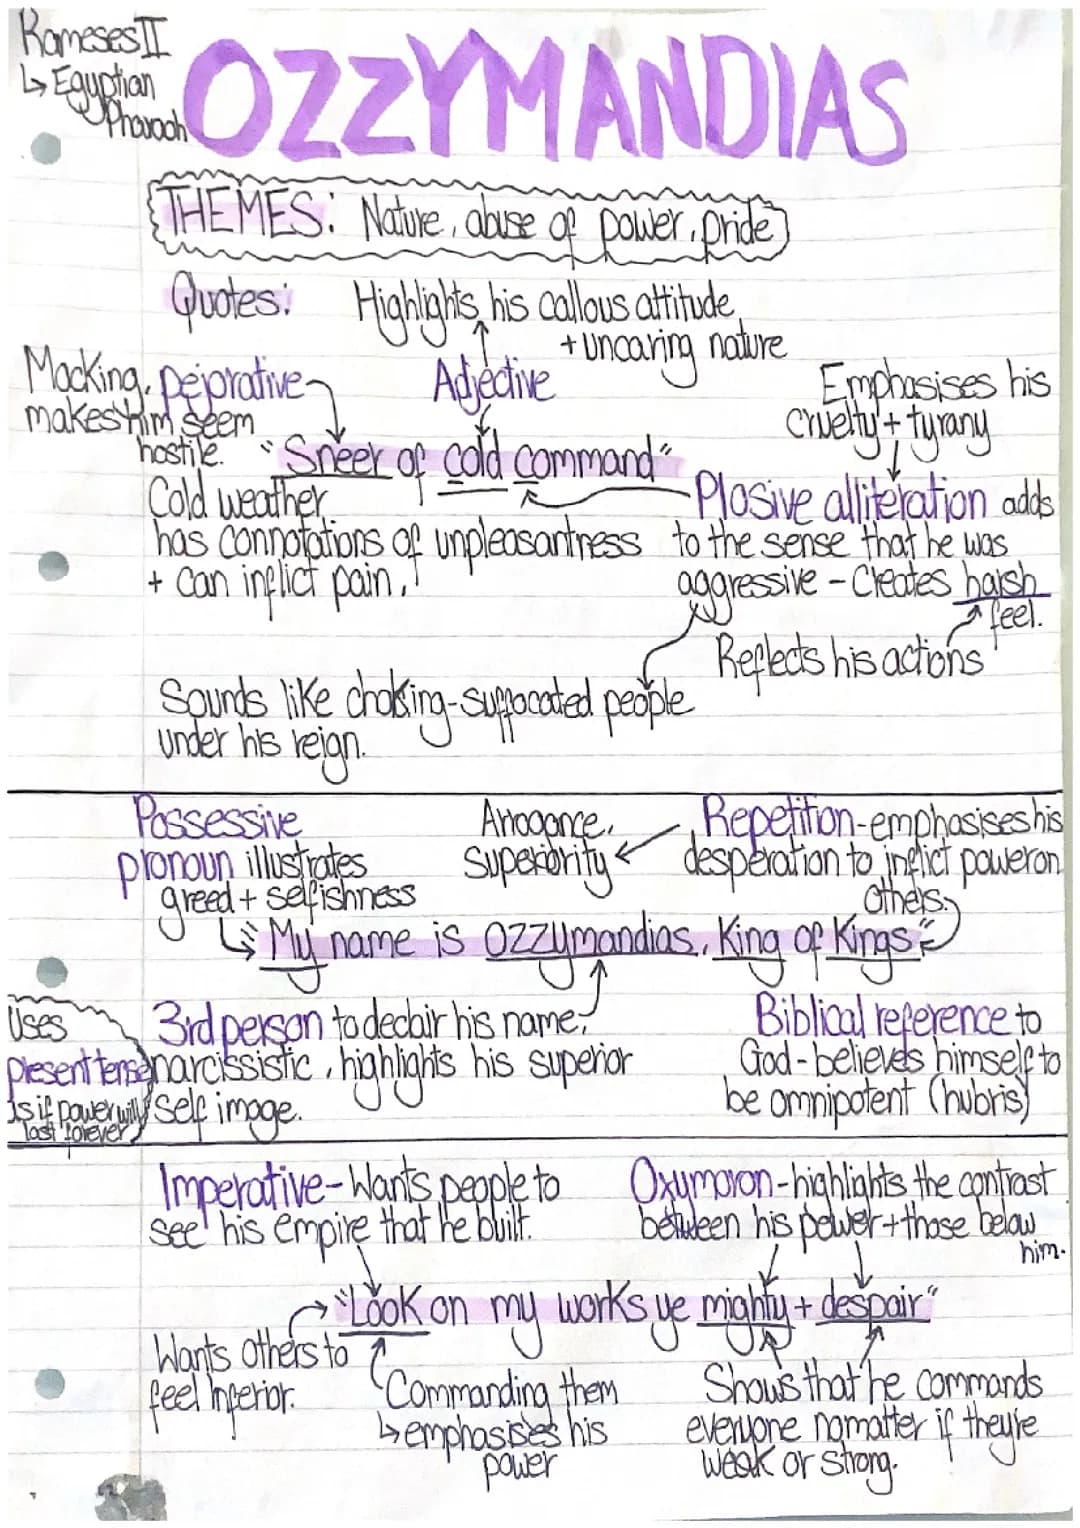 Rameses II
↳ Egyptian
Pharaoh
OZZYMANDIAS
THEMES: Nature, abuse of power, pride
Quotes:
Highlights his callous attitude
+ uncaring nature
Mocking, pejorative
makes him seem
hostile.
Adjective
Emphasises his
cruelty + tyranny
"Sneer of cold command"
Cold weather
has connotations of unpleasantness
+ can inflict pain.
Plosive alliteration adds
to the sense that he was
aggressive - Creates harsh
feel.
Reflects his actions
Sounds like choking - suffocated people
under his reign.
Possessive
pronoun illustrates
greed + selfishness
Arrogance,
Superiority
Repetition - emphasises his
desperation to inflict power on
others.
"My name is Ozzymandias, King of Kings"
Uses
present tense
as if power will
last forever
3rd person to declair his name,
narcissistic, highlights his superior
self image.
Biblical reference to
God - believes himself to
be omnipotent (hubris)
Imperative - Wants people to
see his empire that he built.
Oxymoron - highlights the contrast
between his power + those below
him.
"Look on my works ye mighty + despair"
Wants others to
feel inferior.
Commanding them
↳ emphasises his
power
Shows that he commands
everyone nomatter if they're
weak or strong.